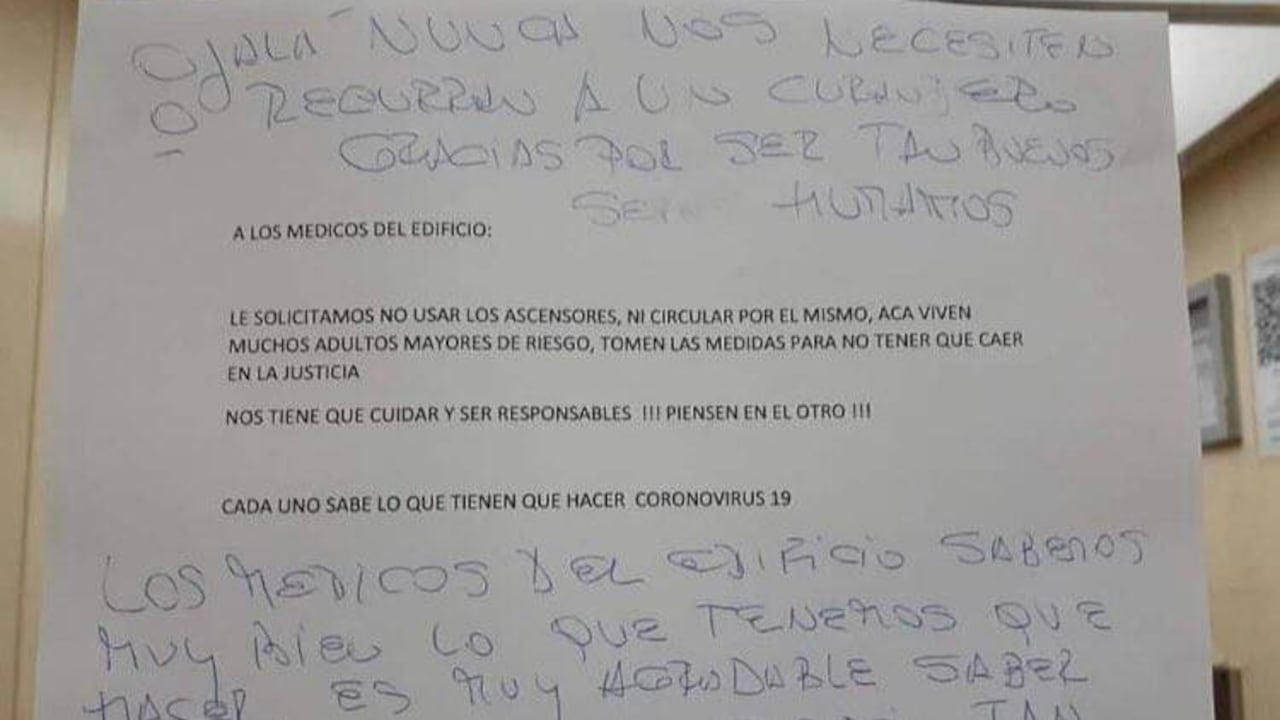 OJALÁ NUNCA NOS NECESITEN
O RECURRAN A UN CURANJERO
GRACIAS POR SER TAN BUENOS
SE HUMANOS
A LOS MEDICOS DEL EDIFICIO:
LE SOLICITAMOS NO USAR LOS ASCENSORES, NI CIRCULAR POR EL MISMO, ACA VIVEN
MUCHOS ADULTOS MAYORES DE RIESGO, TOMEN LAS MEDIDAS PARA NO TENER QUE CAER
EN LA JUSTICIA
NOS TIENE QUE CUIDAR Y SER RESPONSABLES !!! PIENSEN EN EL OTRO !!!
CADA UNO SABE LO QUE TIENEN QUE HACER CORONOVIRUS 19
LOS MEDICOS DEL EDIFICIO SABEMOS
MUY BIEN LO QUE TENEMOS QUE
HACER ES MUY AGRADABLE SABER
TAN